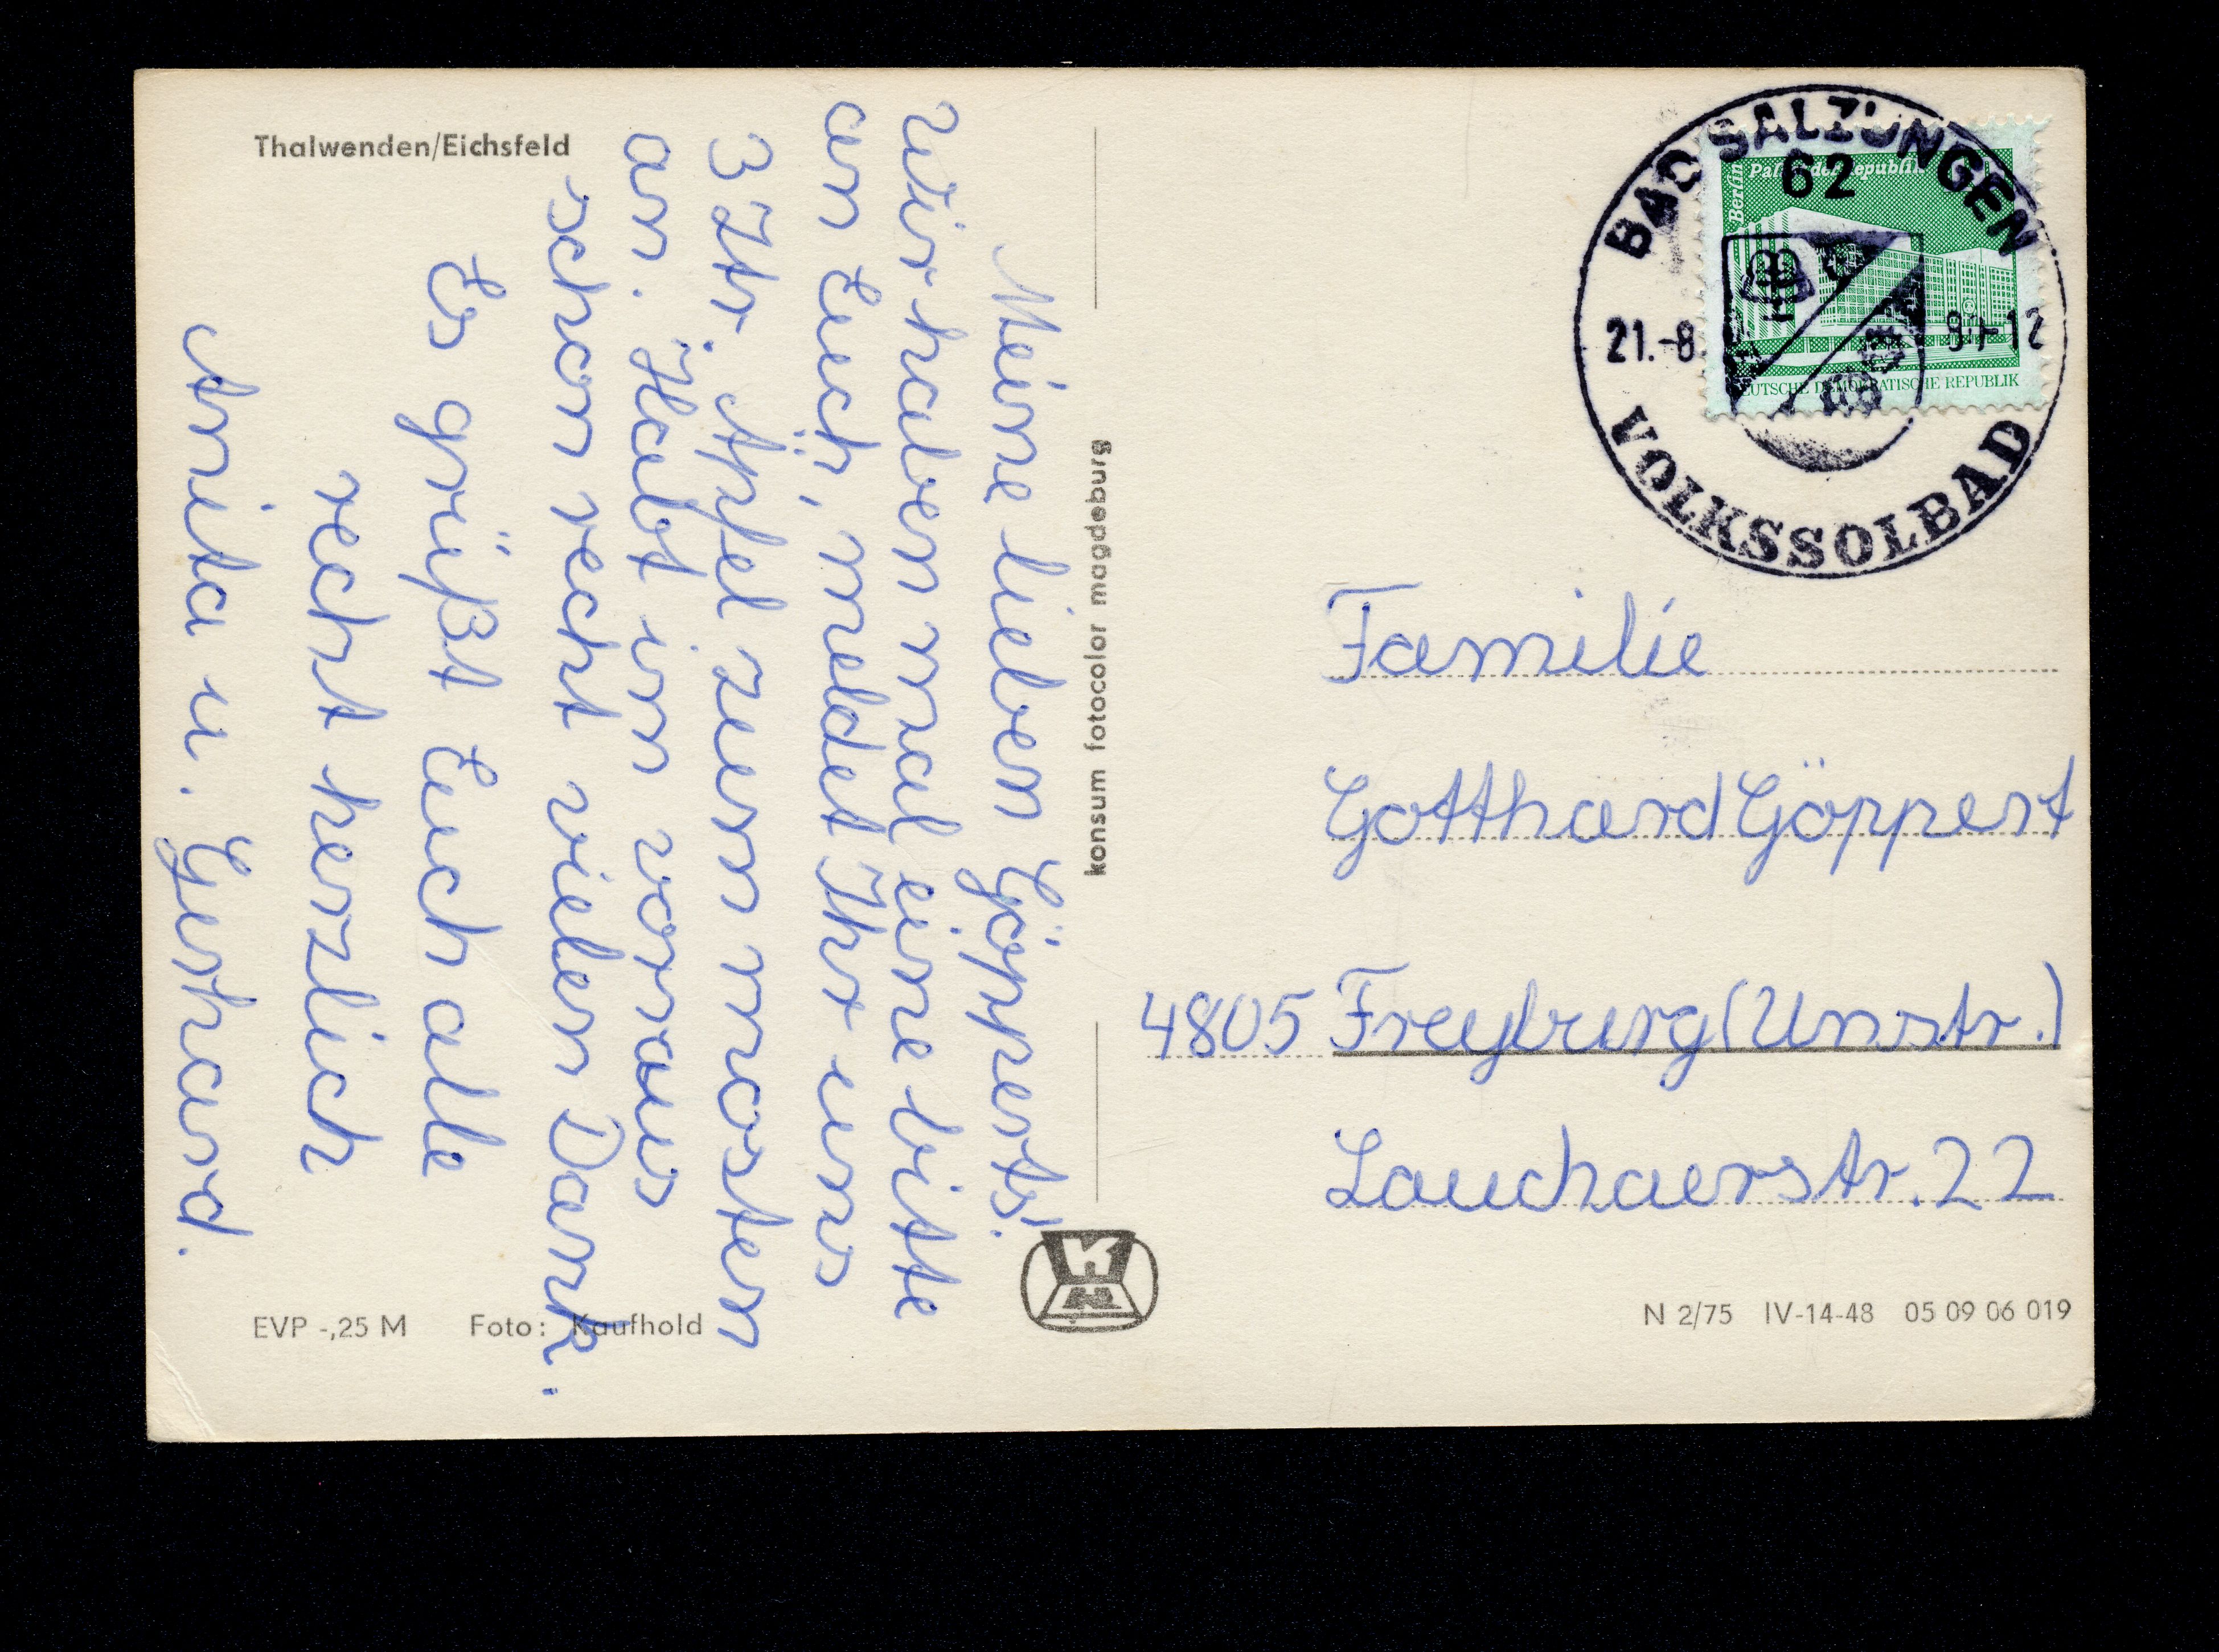 Thalwenden/Eichsfeld
Meine lieben Göpperts!
Wir haben mal eine bitte
an Euch, meldet Ihr uns
3 Ztr. Äpfel zum mosten
an. Habt im vorraus
schon recht vielen Dank.
Es grüßt Euch alle
recht herzlich
Anita u. Gerhard.
EVP -,25 M Foto: Kaufhold
konsum fotocolor magdeburg
BAD SALZUNGEN
62
21.-8
-12
VOLKSSOLBAD
Berlin Palast der Republik
DEUTSCHE DEMOKRATISCHE REPUBLIK
Familie
Gotthard Göppert
4805 Freyburg (Unstr.)
Lauchaerstr. 22
N 2/75 IV-14-48 05 09 06 019